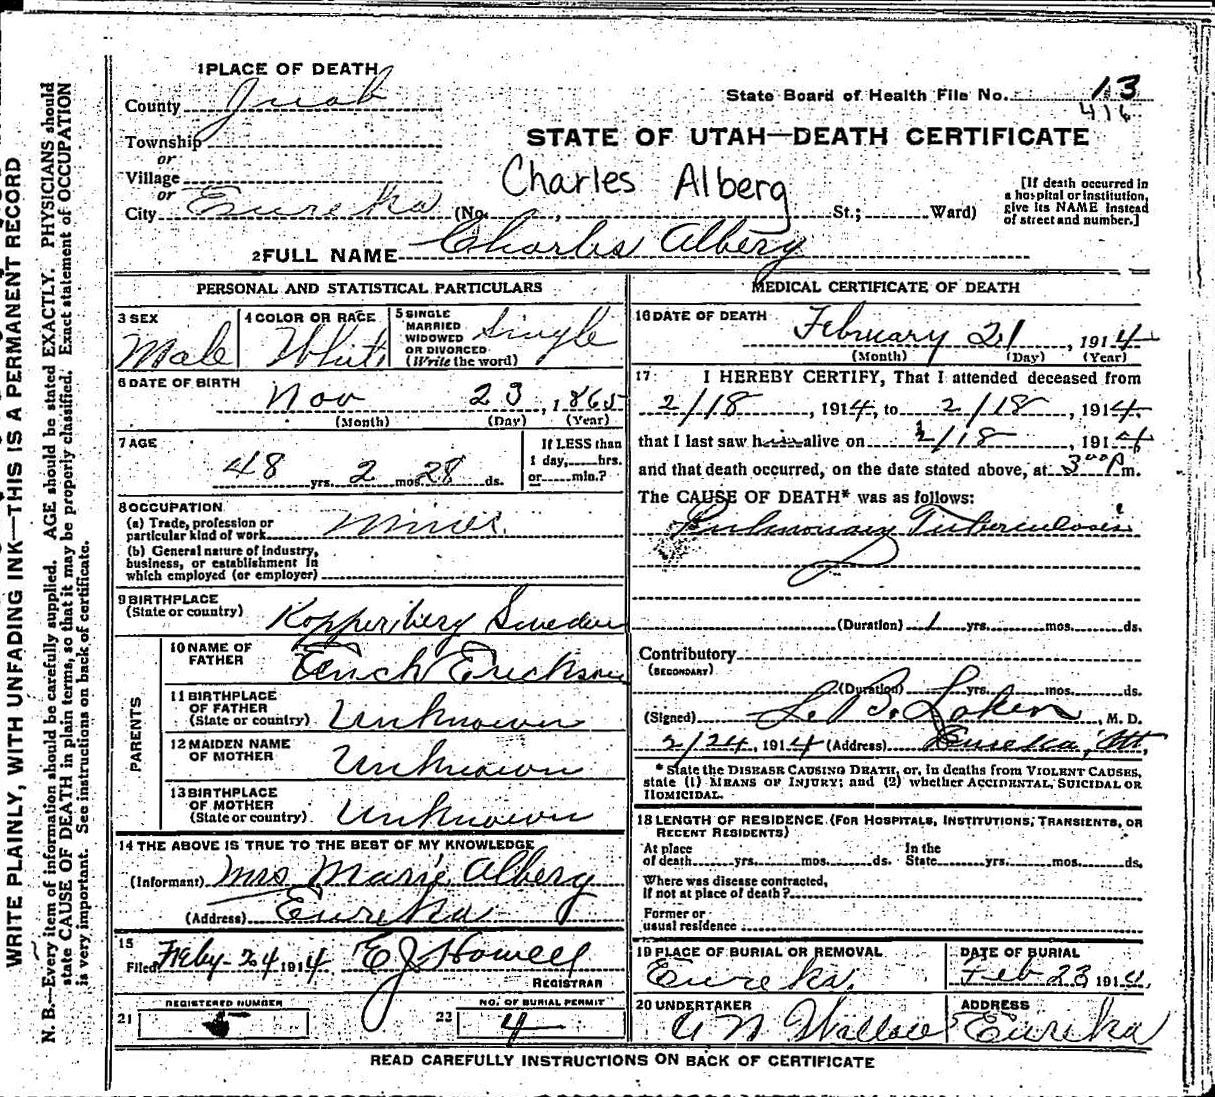 1 PLACE OF DEATH
County Juab
State Board of Health File No. 13
416
Township
or
Village
or
City Eureka (No. , St.; Ward)
STATE OF UTAH—DEATH CERTIFICATE
Charles Alberg
[If death occurred in
a hospital or institution,
give its NAME instead
of street and number.]
2 FULL NAME Charles Alberg
PERSONAL AND STATISTICAL PARTICULARS
3 SEX
Male
4 COLOR OR RACE
White
5 SINGLE
MARRIED
WIDOWED
OR DIVORCED
(Write the word)
Single
6 DATE OF BIRTH
Nov 23, 1865
(Month) (Day) (Year)
7 AGE
48 yrs. 2 mos. 28 ds.
If LESS than
1 day, hrs.
or min.?
8 OCCUPATION
(a) Trade, profession or
particular kind of work Miner
(b) General nature of industry,
business, or establishment in
which employed (or employer)
9 BIRTHPLACE
(State or country) Kopperberg Sweden
PARENTS
10 NAME OF
FATHER Erick Erickson
11 BIRTHPLACE
OF FATHER
(State or country) Unknown
12 MAIDEN NAME
OF MOTHER Unknown
13 BIRTHPLACE
OF MOTHER
(State or country) Unknown
14 THE ABOVE IS TRUE TO THE BEST OF MY KNOWLEDGE
(Informant) Mrs Marie Alberg
(Address) Eureka
15
Filed Feby-24 1914 E J Howell
REGISTRAR
REGISTERED NUMBER
21
NO. OF BURIAL PERMIT
22 4
MEDICAL CERTIFICATE OF DEATH
16 DATE OF DEATH
February 21, 1914
(Month) (Day) (Year)
17 I HEREBY CERTIFY, That I attended deceased from
2/18, 1914, to 2/18, 1914.
that I last saw him alive on 2/18, 1914
and that death occurred, on the date stated above, at 3 00 P m.
The CAUSE OF DEATH* was as follows:
Pulmonary Tuberculosis
(Duration) 1 yrs. mos. ds.
Contributory
(SECONDARY)
(Duration) yrs. mos. ds.
(Signed) L. B. Laker, M. D.
2/24, 1914 (Address) Eureka, Ut.
* State the DISEASE CAUSING DEATH, or, in deaths from VIOLENT CAUSES,
state (1) MEANS OF INJURY; and (2) whether ACCIDENTAL, SUICIDAL OR
HOMICIDAL.
18 LENGTH OF RESIDENCE (FOR HOSPITALS, INSTITUTIONS, TRANSIENTS, OR
RECENT RESIDENTS)
At place In the
of death yrs. mos. ds. State yrs. mos. ds.
Where was disease contracted,
If not at place of death?
Former or
usual residence
19 PLACE OF BURIAL OR REMOVAL
Eureka.
DATE OF BURIAL
Feb 23 1914.
20 UNDERTAKER
A N Wallace
ADDRESS
Eureka
READ CAREFULLY INSTRUCTIONS ON BACK OF CERTIFICATE
WRITE PLAINLY, WITH UNFADING INK—THIS IS A PERMANENT RECORD
N. B.—Every item of information should be carefully supplied. AGE should be stated EXACTLY. PHYSICIANS should
state CAUSE OF DEATH in plain terms, so that it may be properly classified. Exact statement of OCCUPATION
is very important. See instructions on back of certificate.